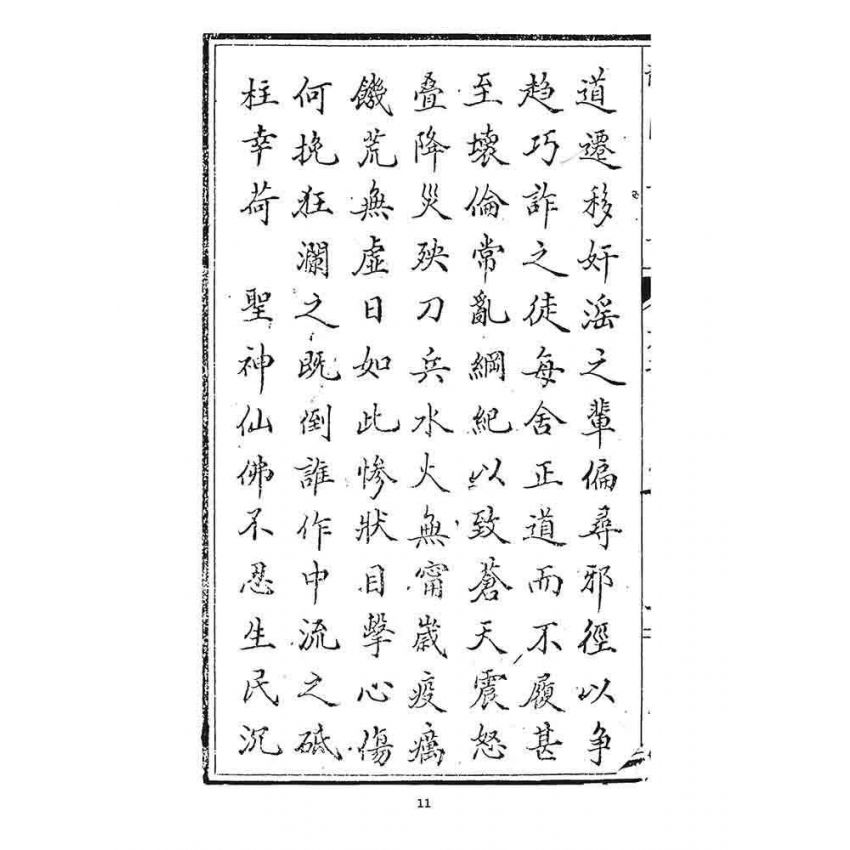 道遷移奸淫之輩偏尋邪徑以争
趋巧詐之徒每舍正道而不履甚
至壞倫常亂綱紀以致蒼天震怒
叠降災殃刀兵水火無甯歲疫癘
饑荒無虛日如此慘狀目擊心傷
何挽狂瀾之既倒誰作中流之砥
柱幸荷　聖神仙佛不忍生民沉
11